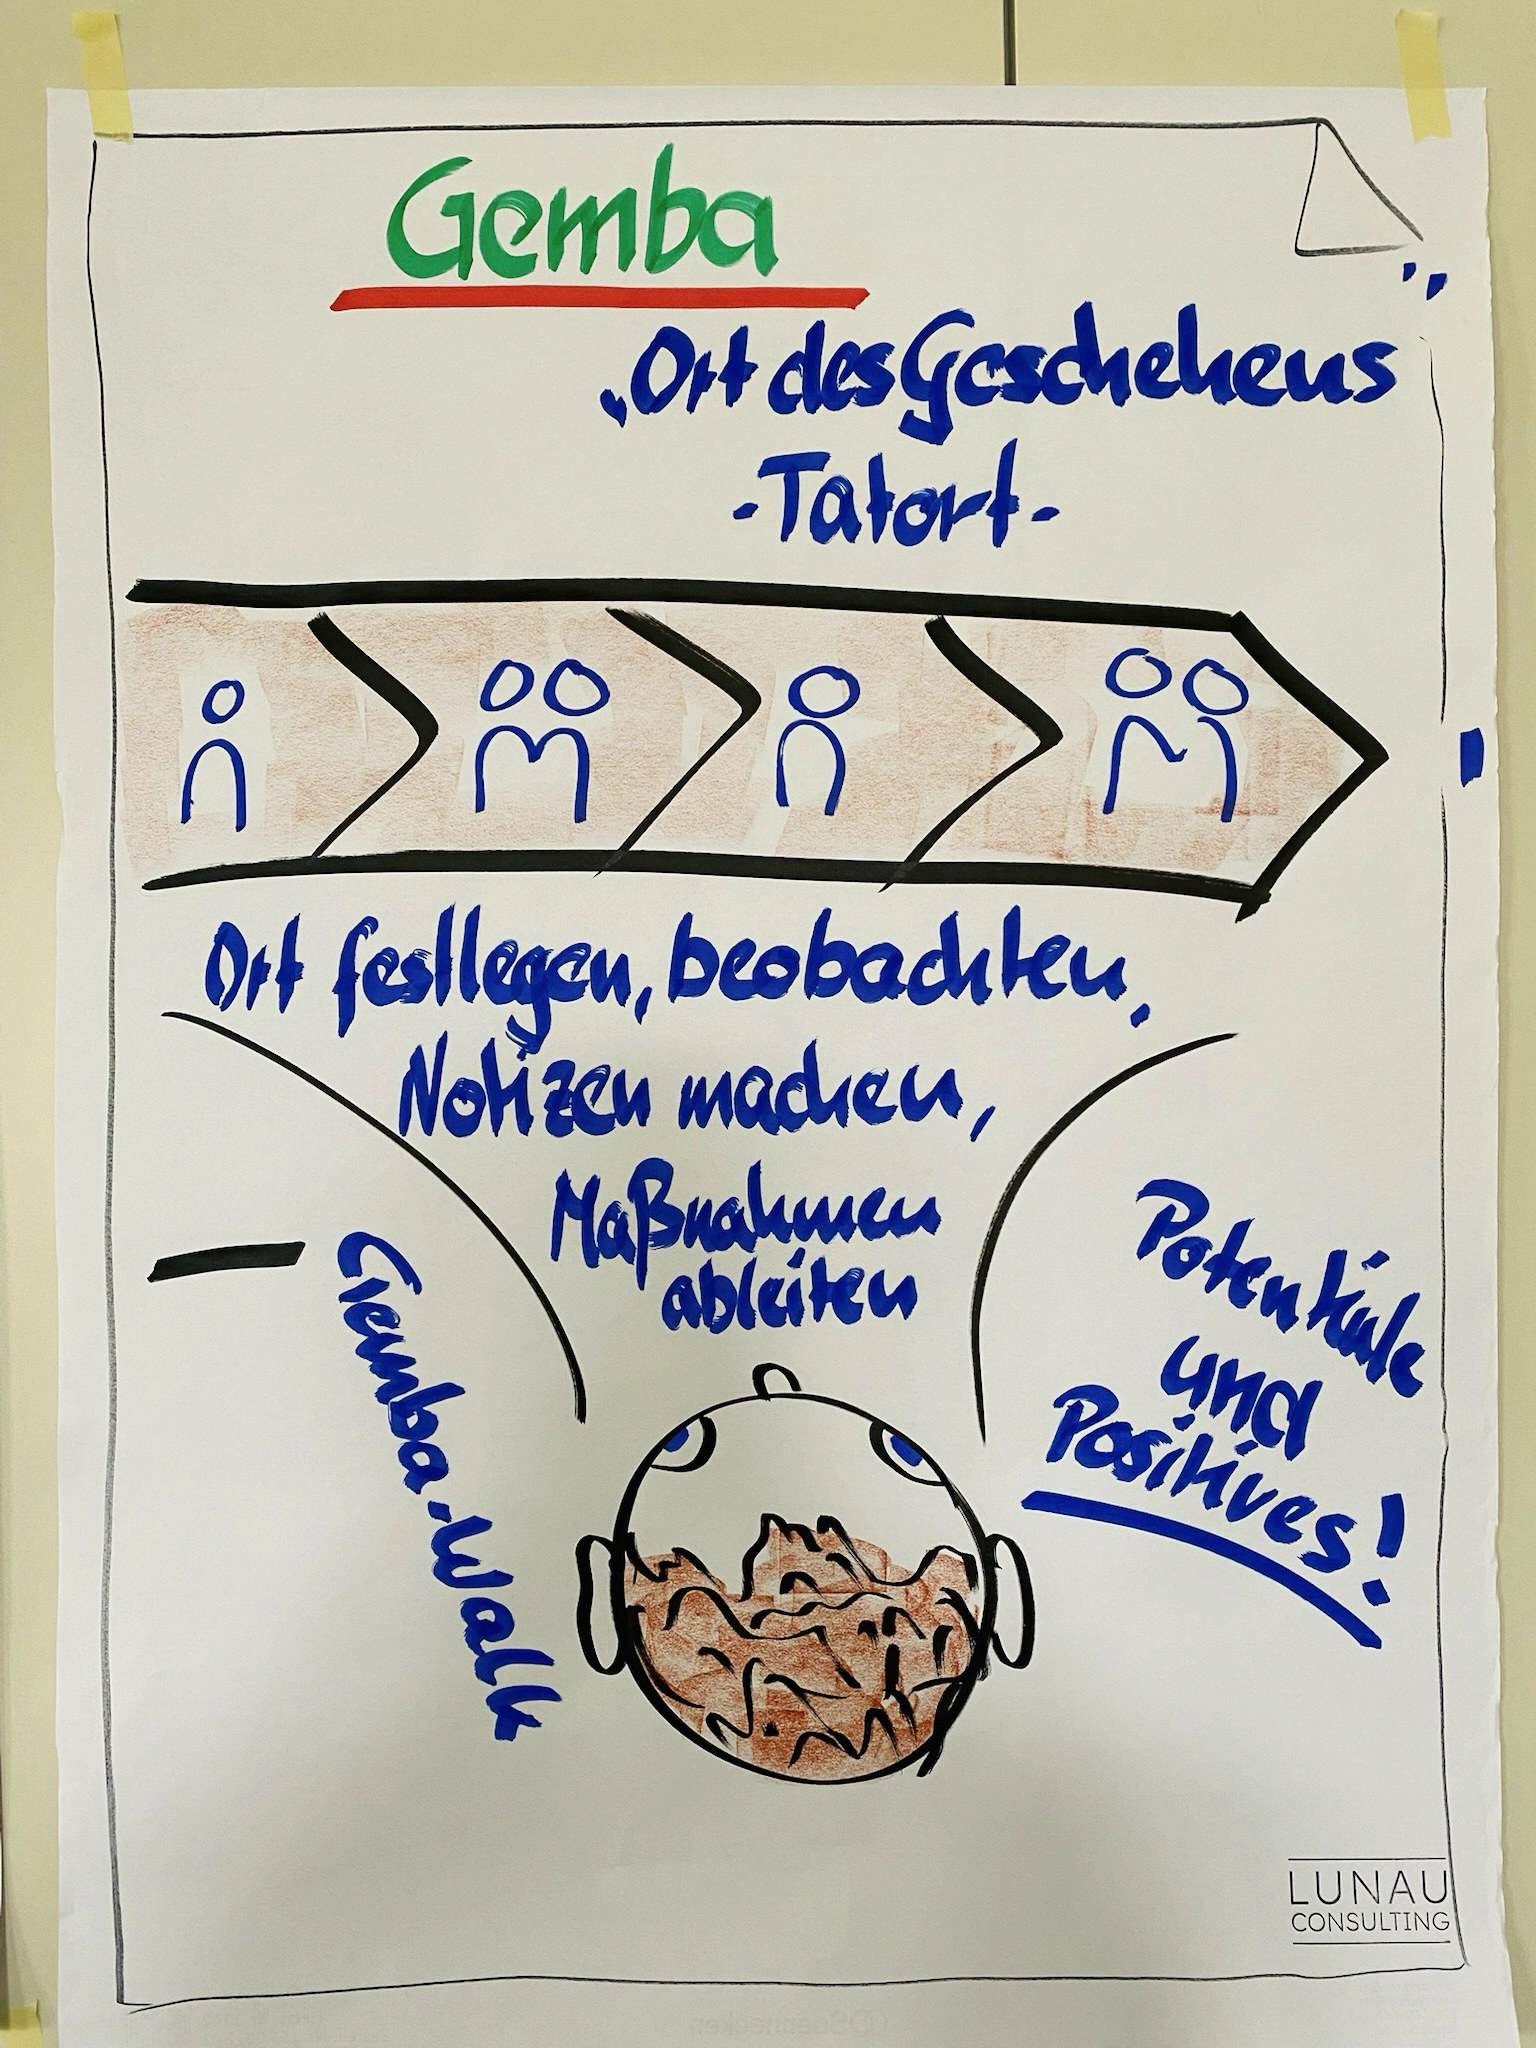 Gemba
„Ort des Geschehens"
-Tatort-
Ort festlegen, beobachten,
Notizen machen,
Maßnahmen
ableiten
Gemba-Walk
Potentiale
und
Positives!
LUNAU
CONSULTING